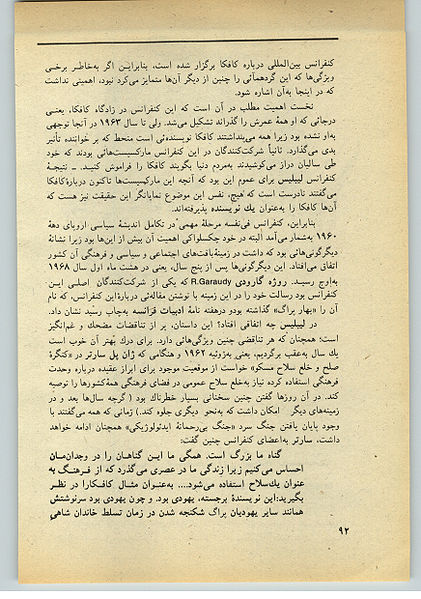 کنفرانس بین‌المللی درباره کافکا برگزار شده است، بنابراین اگر به‌خاطر برخی
ویژگی‌ها که این گردهمآئی را چنین از دیگر آن‌ها متمایز می‌کرد نبود، اهمیتی نداشت
که در اینجا به‌آن اشاره شود.
نخست اهمیت مطلب در آن است که این کنفرانس در زادگاه کافکا، یعنی
درجائی که او همهٔ عمرش را گذراند تشکیل می‌شد. ولی تا سال ۱۹۶۳ در آنجا توجهی
به‌او نشده بود زیرا همه می‌پنداشتند کافکا نویسنده‌ئی است منحط که بر خواننده تأثیر
بدی می‌گذارد. ثانیاً شرکت‌کنندگان در این کنفرانس مارکسیست‌هائی بودند که خود
طی سالیان دراز می‌کوشیدند به‌مردم دنیا بگویند کافکا را فراموش کنید. ـ نتیجهٔ
کنفرانس لیبلیس برای عموم این بود که آنچه این مارکسیست‌ها تاکنون دربارهٔ کافکا
می‌گفتند نادرست است که هیچ، نفس این موضوع نمایانگر این حقیقت نیز هست که
آن‌ها کافکا را به‌عنوان یك نویسنده پذیرفته‌اند.
بنابراین، کنفرانس فی‌نفسه مرحلهٔ مهمی در تکامل اندیشهٔ سیاسی اروپای دههٔ
۱۹۶۰ به‌شمار می‌آمد البته در خود چکسلواکی اهمیت آن بیش از این‌ها بود زیرا نشانهٔ
دیگرگونی‌هائی بود که داشت در زمینهٔ‌بافت‌های اجتماعی و سیاسی و فرهنگی آن کشور
اتفاق می‌افتاد. این دیگرگونی‌ها پس از پنج سال، یعنی در هشت ماه اول سال ۱۹۶۸
به‌اوج رسید. روژه گارودی R.Garaudy که یکی از شرکت‌کنندگان اصلی این
کنفرانس بود رسالت خود را در این زمینه با نوشتن مقاله‌ئی دربارهٔ این کنفرانس، که نام
آن را «بهار پراگ» گذاشته بودو درهفته نامهٔ ادبیات فرانسه به‌چاپ رسید نشان داد.
در لیبلیس چه اتفاقی افتاد؟ این داستان، پر از تناقضات مضحك و غم‌انگیز
است؛ همچنان که هر تناقضی چنین ویژگی‌هائی دارد. برای درك بهتر آن خوب است
یك سال به‌عقب برگردیم، یعنی به‌ژوئیه ۱۹۶۲ و هنگامی که ژان پل سارتر در «کنگرهٔ
صلح و خلع سلاح مسکو» خواست از موقعیت موجود برای ابراز عقیده درباره وحدت
فرهنگی استفاده کرده نیاز به‌خلع سلاح عمومی در فضای فرهنگی همهٔ‌کشورها را توصیه
کند. در آن روزها گفتن چنین سخنانی بسیار خطرناك بود ( گرچه سال‌ها بعد و در
زمینه‌های دیگر امکان داشت که به‌نحو دیگری جلوه کند.) زمانی که همه می‌گفتند با
وجود پایان یافتن جنگ سرد «جنگ بی‌رحمانهٔ ایدئولوژیکی» همچنان ادامه خواهد
داشت، سارتر به‌اعضای کنفرانس چنین گفت:
گناه ما بزرگ است. همگی ما این گناهان را در وجدان‌مان
احساس می‌کنیم زیرا زندگی ما در عصری می‌گذرد که از فرهنگ به
عنوان یك‌سلاح استفاده می‌شود.... به‌عنوان مثال کافکا‌را در نظر
بگیرید:این نویسندهٔ برجسته، یهودی بود. و چون یهودی بود سرنوشتش
همانند سایر یهودیان پراگ شکنجه شدن در زمان تسلط خاندان شاهی
۹۲